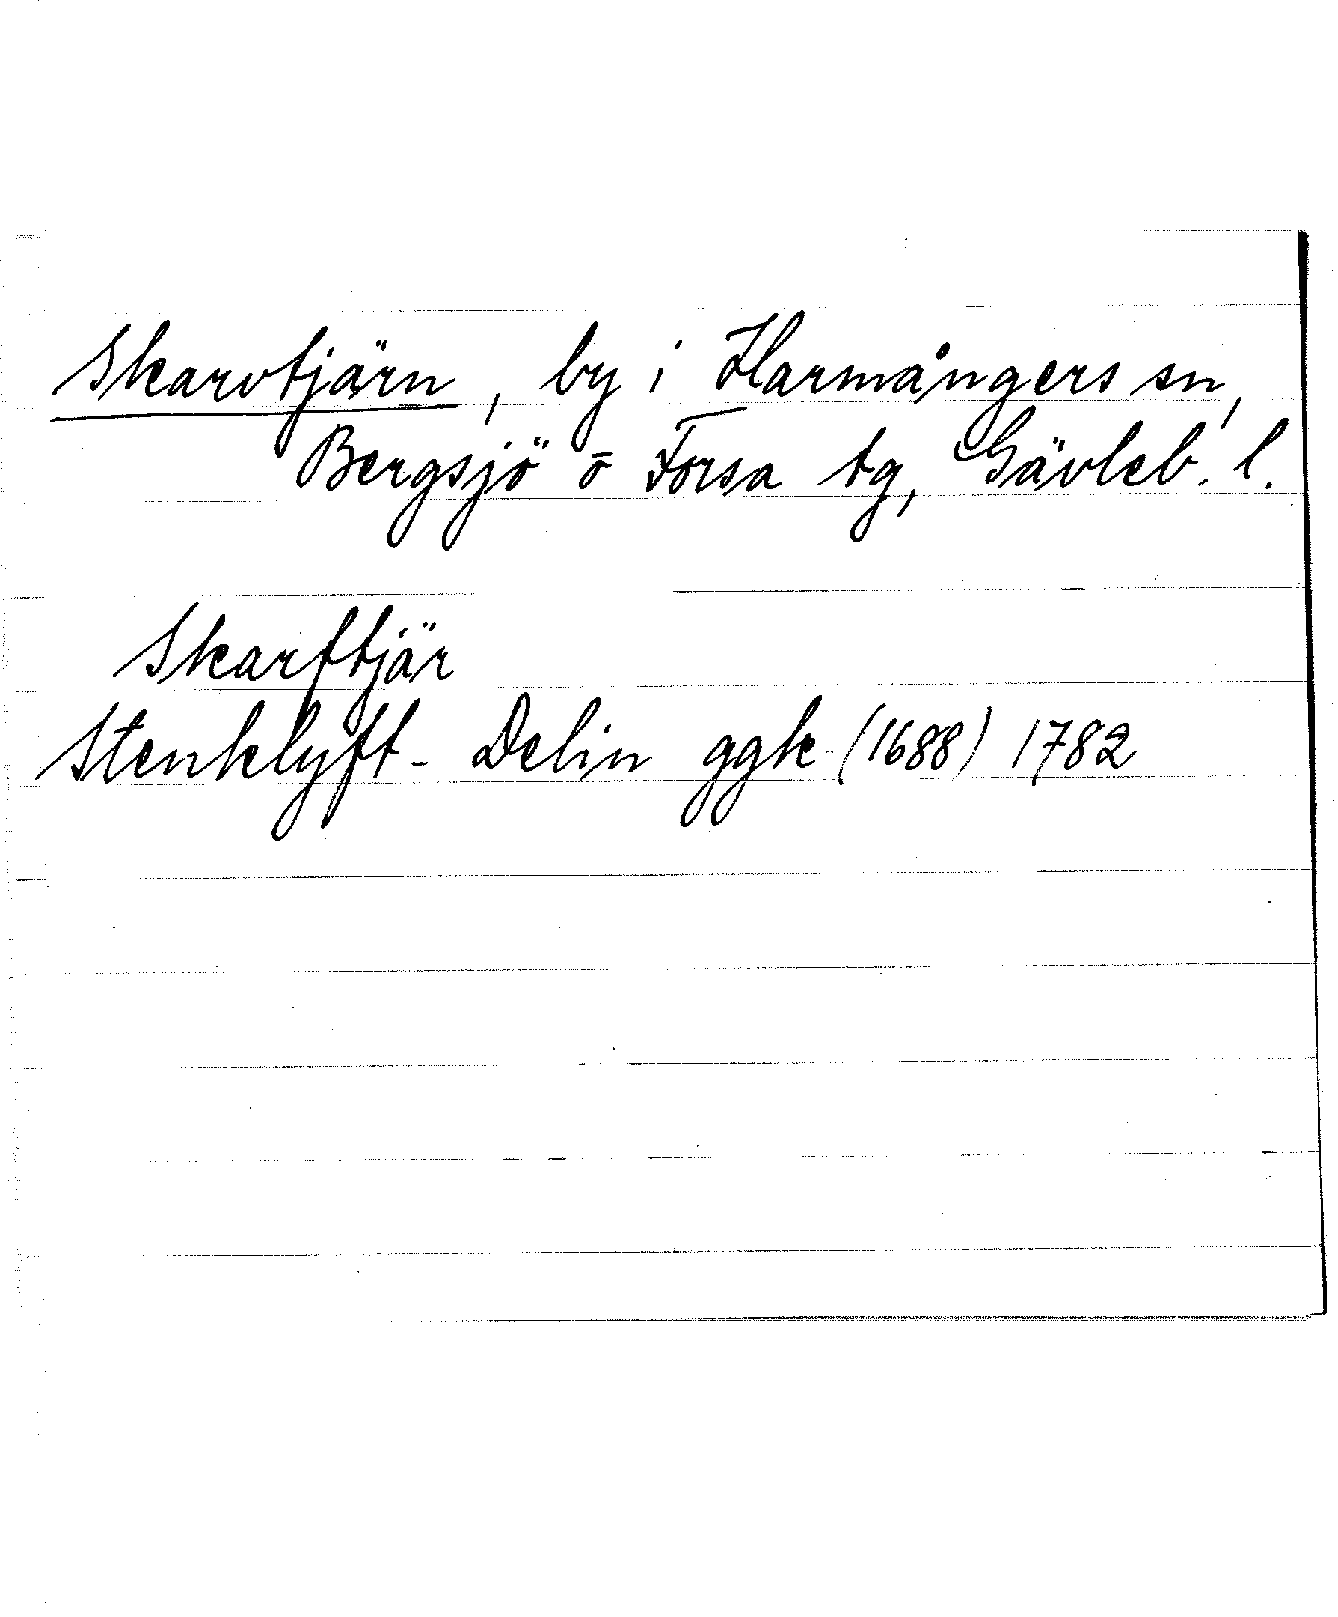 Skarvtjärn, by i Harmångers sn,
Bergsjö o Forsa tg, Gävleb. l.
Skarftjär
Stenklyft - Delin ggk (1688) 1782